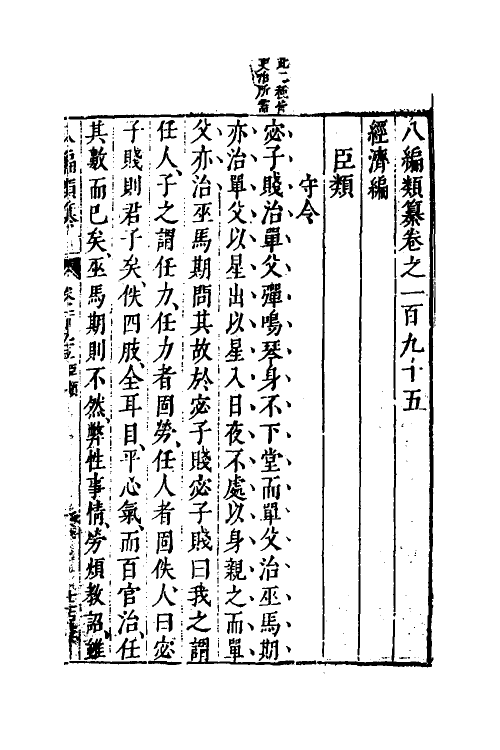 八編類纂卷之一百九十五
經濟編
臣類
守令
宓子賤治單父彈鳴琴身不下堂而單父治巫馬期
亦治單父以星出以星入日夜不處以身親之而單
父亦治巫馬期問其故於宓子賤宓子賤曰我之謂
任人子之謂任力任力者固勞任人者固佚人曰宓
子賤則君子矣佚四肢全耳目平心氣而百官治任
其數而已矣巫馬期則不然弊性事情勞煩教詔雖
八編類纂
臣類